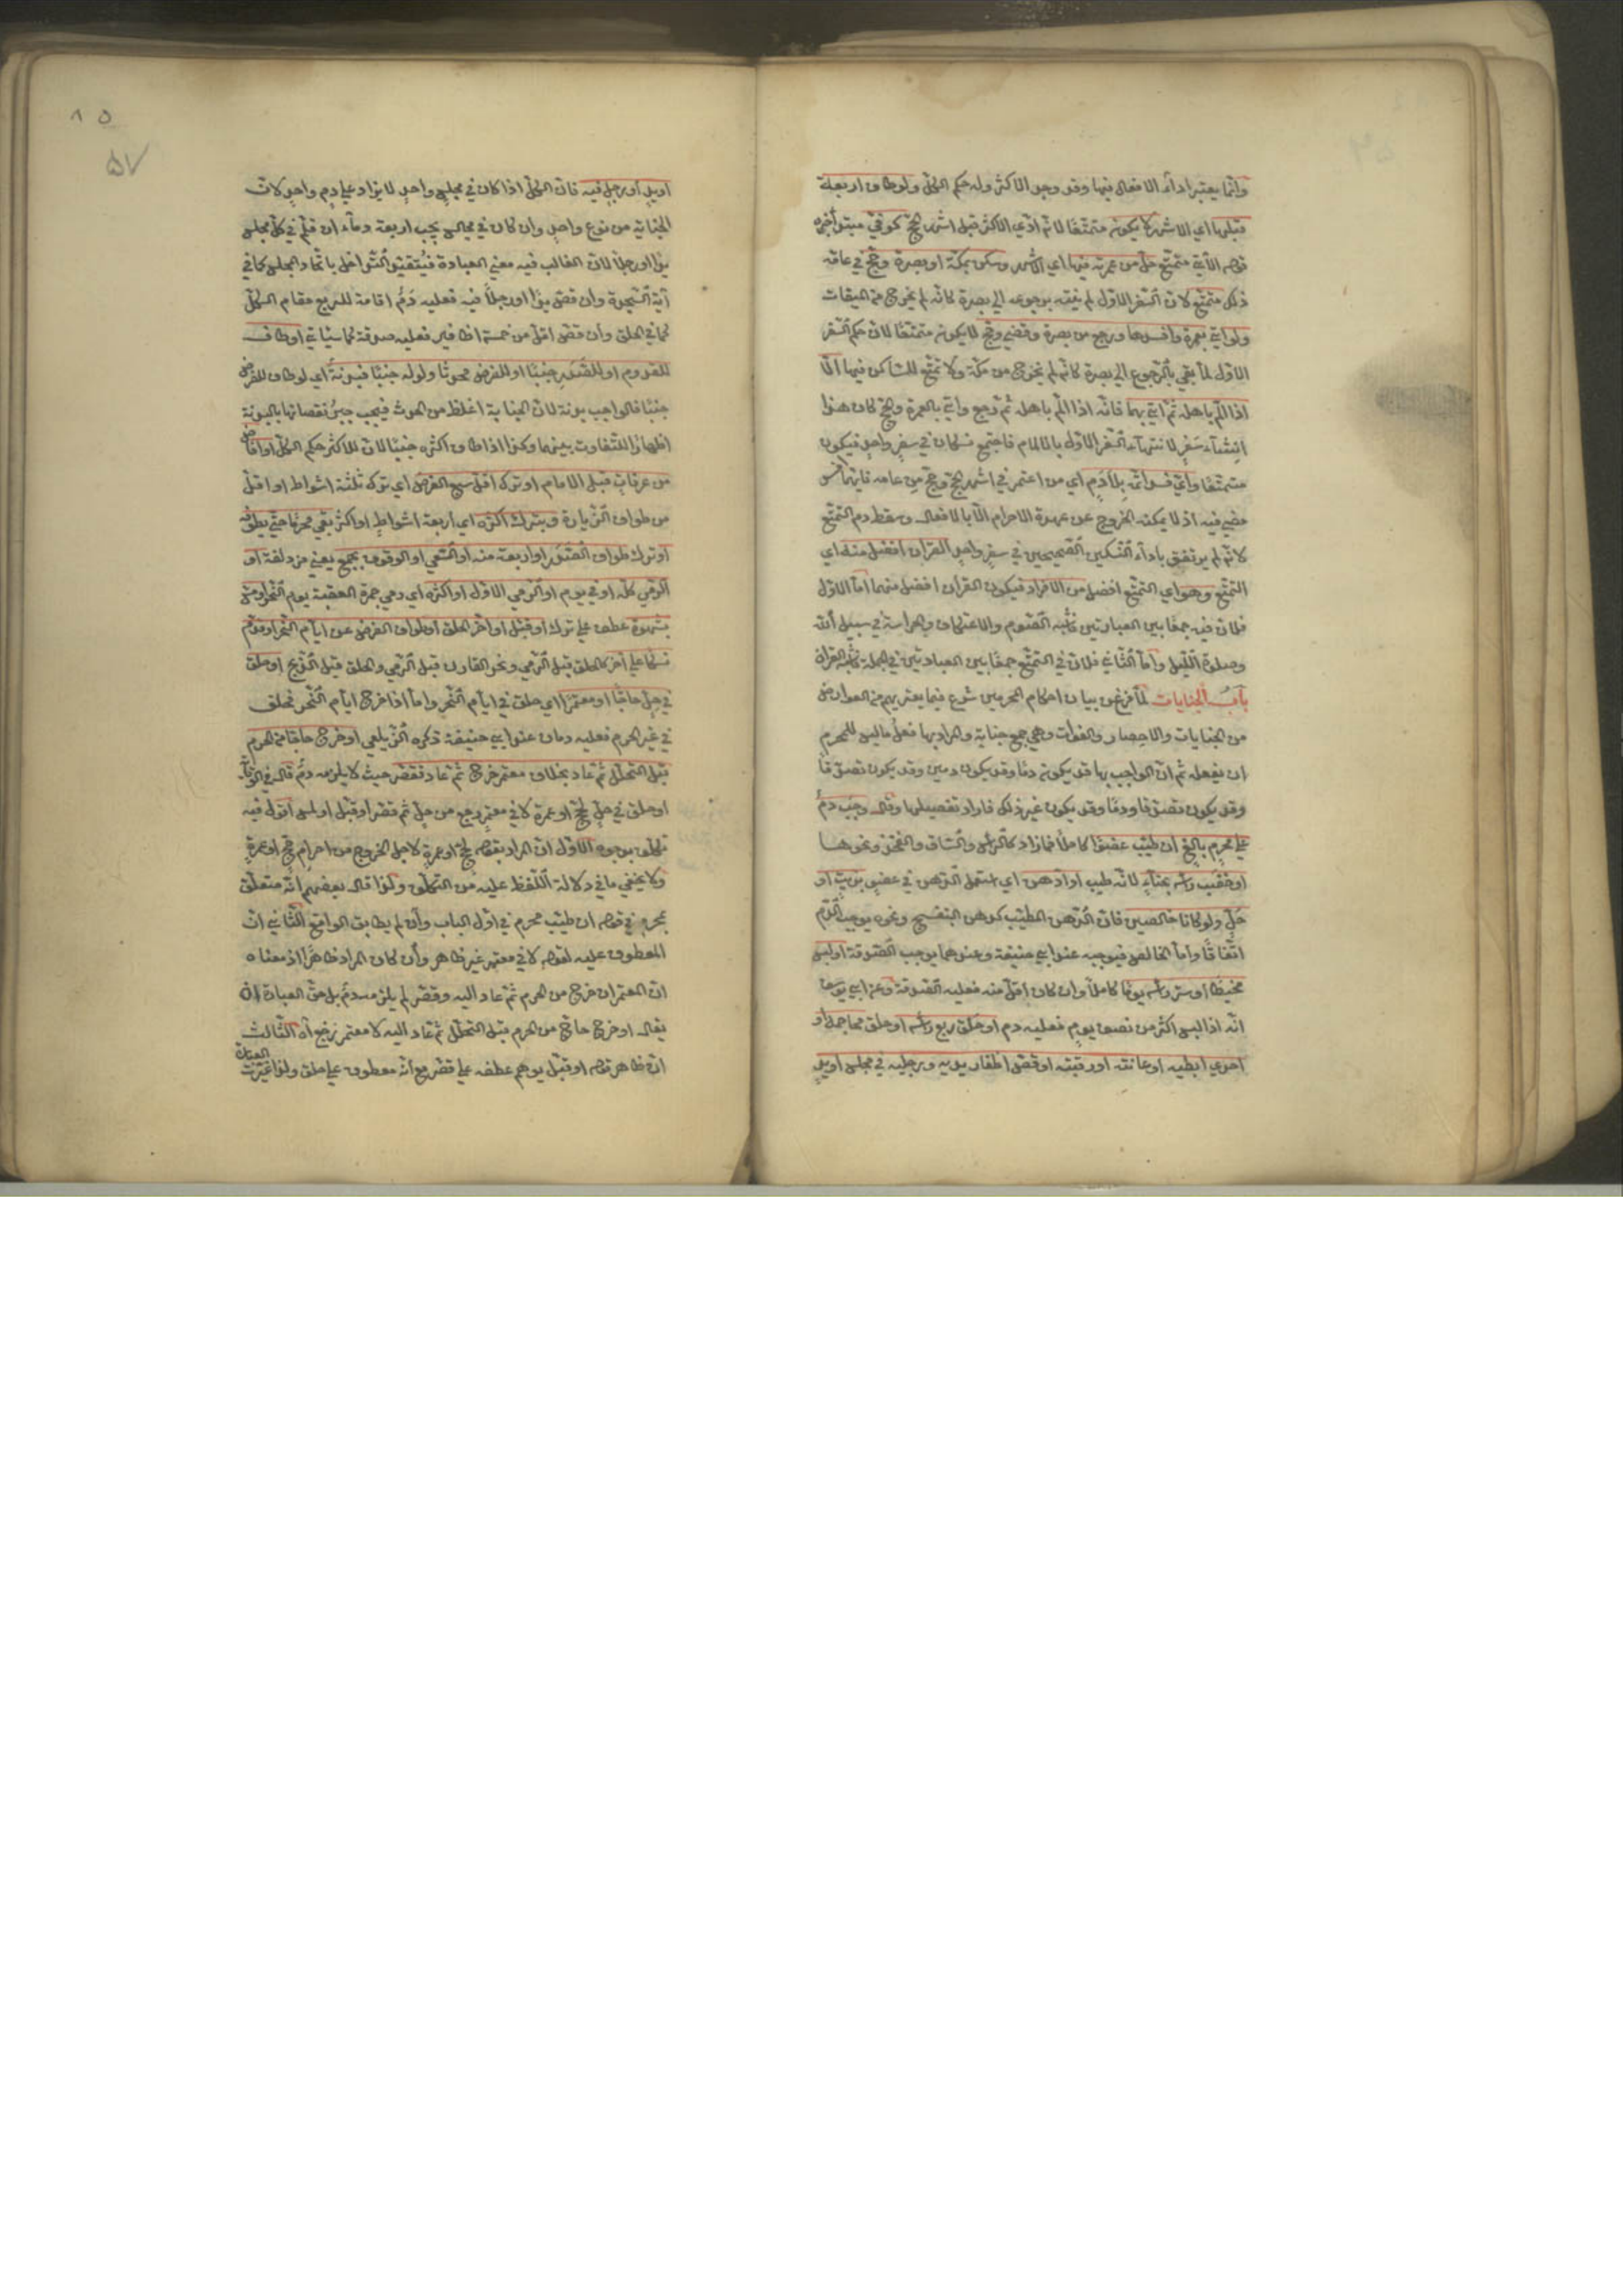 وانما يعتبر اداء الافعال فيها وقد وجد الاكثر وله حكم الكل ولو طاف اربعة
قبلها اي الاشهر لا يكون متمتعا لانه ادي الاكثر قبل اشهر الحج كوفي مبتدأ خبره
قوله الآتي متمتع حل من عمرته فيها اي الاشهر وسكن بمكة او بصرة وحج في عامه
ذلك متمتع لان السفر الاول لم ينته برجوعه الي بصرة كانه لم يخرج من الميقات
ولو اتي بعمرة وافسدها ورجع من بصرة وقضي وحج لا يكون متمتعا لان حكم السفر
الاول لما بقي بالرجوع الي بصرة كانه لم يخرج من مكة ولا تمتع للساكن فيها الا
اذا الم باهله ثم اتي بهما فانه اذا الم باهله ثم رجع واتي بالعمرة والحج كان هذا
انشاء سفر لانتهاء السفر الاول بالالمام فاجتمع نسكان في سفر واحد فيكون
متمتعا واي فسد اتمه بلا دم اي من اعتمر في اشهر الحج وحج من عامه فايهما افسد
مضي فيه اذ لا يمكنه الخروج عن عهدة الاحرام الا بالافعال وسقط دم التمتع
لانه لم يرتفق باداء النسكين الصحيحين في سفر واحد القران افضل منه اي
التمتع وهو اي التمتع افضل من الافراد فيكون القران افضل منهما اما الاول
فلان فيه جمعا بين العبادتين فاشبه الصوم والاعتكاف والحراسة في سبيل الله
وصلوة الليل واما الثاني فلان في التمتع جمعا بين العبادتين في الجملة فاشبه القران
باب الجنايات لما فرغ من بيان احكام المحرمين شرع فيما يعتريهم من العوارض
من الجنايات والاحصار والفوات وهي جمع جناية والمراد بها فعل ما ليس للمحرم
ان يفعله ثم ان الواجب بها قد يكون دما وقد يكون دمين وقد يكون تصدقا
وقد يكون تصدقا ودما وقد يكون غير ذلك فاراد تفصيلها وقال وجب دم
علي محرم بالغ ان طيب عضوا كاملا فما زاد كالرأس والساق والفخذ ونحوها
او خضب رأسه بحناء لانه طيب او ادهن اي استعمل الدهن في عضو بزيت او
حل ولو كانا خالصين فان الدهن المطيب كدهن البنفسج ونحوه يوجب الدم
اتفاقا واما الخالص فيوجبه عند ابي حنيفة وعندهما يوجب الصدقة او لبس
مخيطا او ستر رأسه يوما كاملا وان كان اقل منه فعليه الصدقة وعن ابي يوسف
انه اذا لبس اكثر من نصف يوم فعليه دم او حلق ربع رأسه او حلق محاجمه او
احدي ابطيه او عانته او رقبته او قص اظفار يديه ورجليه في مجلس او يد
او يد او رجل فيه فان الكل اذا كان في مجلس واحد لا يزاد علي دم واحد لان
الجناية من نوع واحد وان كان في مجالس يجب اربعة دماء ان قلم في كل مجلس
يدا او رجلا لان الغالب فيه معني العبادة فيتقيد التداخل باتحاد المجلس كما في
آية السجدة وان قص يدا او رجلا فيه فعليه دم اقامة للربع مقام الكل
كما في الحلق وان قص اقل من خمسة اظافير فعليه صدقة كما سيأتي او طاف
للقدوم او للصدر جنبا او للفرض محدثا ولو له جنبا فبدنة اي لو طاف للفرض
جنبا فالواجب بدنة لان الجناية اغلظ من الحدث فيجب جبر نقصانها بالبدنة
اظهارا للتفاوت بينهما وكذا اذا طاف اكثره جنبا لان للاكثر حكم الكل او افاض
من عرفات قبل الامام او ترك اقل سبع الفرض اي ترك ثلثة اشواط او اقل
من طواف الزيارة وبترك اكثره اي اربعة اشواط او اكثر بقي محرما حتي يطوفه
او ترك طواف الصدر او اربعة منه او السعي او الوقوف بجمع يعني مزدلفة او
الرمي كله او في يوم او الرمي الاول او اكثره اي رمي جمرة العقبة يوم النحر او مس
بشهوة عطف علي ترك او قبل او اخر الحلق او طواف الفرض عن ايام النحر او قدم
نسكا علي آخر كالحلق قبل الرمي ونحر القارن قبل الرمي والحلق قبل الذبح او حلق
في حل حاجا او معتمرا اي حلق في ايام النحر واما اذا خرج ايام النحر فحلق
في غير الحرم فعليه دمان عند ابي حنيفة ذكره الزيلعي او خرج حاجا من الحرم
قبل التحلل ثم عاد بخلاف معتمر خرج ثم عاد فقصر حيث لا يلزمه دم قال في الوقاية
او حلق في حل لحج او عمرة لا في معتمر رجع من حل ثم قصر او قبل او لمس اقول فيه
تكلف بوجوه الاول ان المراد بقوله لحج او عمرة لاجل الخروج من احرام حج او عمرة
ولا يخفي ما في دلالة اللفظ عليه من التكلف ولذا قال بعضهم انه متعلق
بمحرم في قوله ان طيب محرم في اول الباب وان لم يطابق الواقع الثاني ان
المعطوف عليه لقوله لا في معتمر غير ظاهر وان كان المراد ظاهرا اذ معناه
ان المعتمر ان خرج من الحرم ثم عاد اليه وقصر لم يلزمه دم بل حق العبادة ان
يقال او خرج حاج من الحرم قبل التحلل ثم عاد اليه لا معتمر رجع آه الثالث
ان ظاهر قوله او قبل يوهم عطفه علي قصر مع انه معطوف علي حلق ولذا غيرت
العبارة